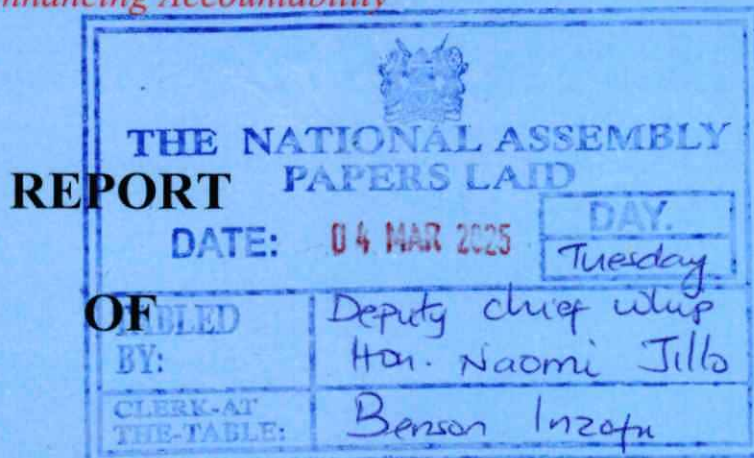 Enhancing Accountability
THE NATIONAL ASSEMBLY
PAPERS LAID
REPORT
DATE: 04 MAR 2025
DAY.
Tuesday
OF
TABLED
BY:
Deputy chief whip
Hon. Naomi Jillo
CLERK-AT
THE-TABLE:
Benson